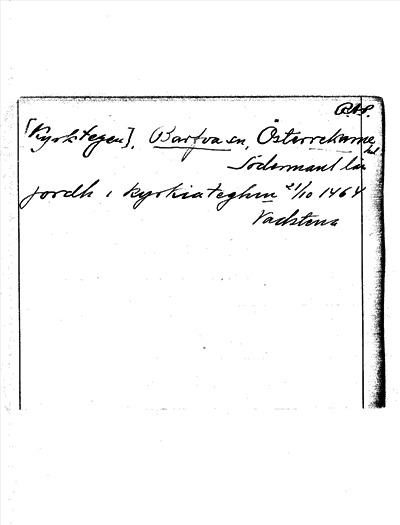 [Kyrktegen], Bärfva sn, Österrekarne
hd
Södermanl län
jordh i kyrkiateghen 21/10 1464
Vadstena